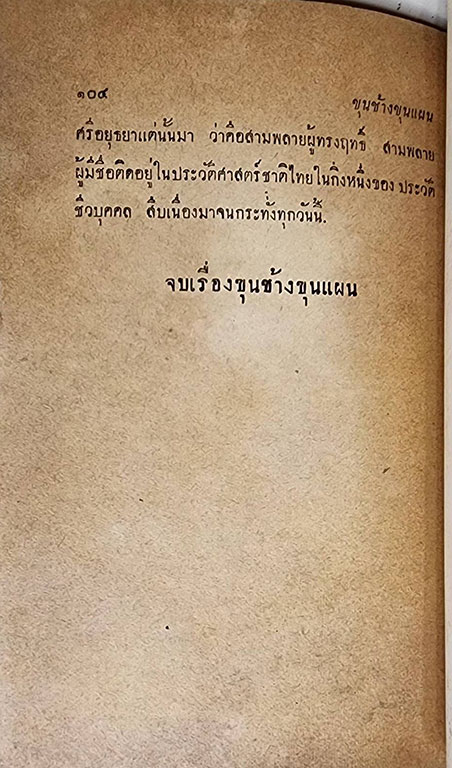 ๑๐๔ ขุนช้างขุนแผน
ศรีอยุธยาแต่นั้นมา ว่าคือสามพลายผู้ทรงฤทธิ์ สามพลาย
ผู้มีชื่อติดอยู่ในประวัติศาสตร์ชาติไทยในกิ่งหนึ่งของ ประวัติ
ชีวบุคคล สืบเนื่องมาจนกระทั่งทุกวันนี้.
จบเรื่องขุนช้างขุนแผน